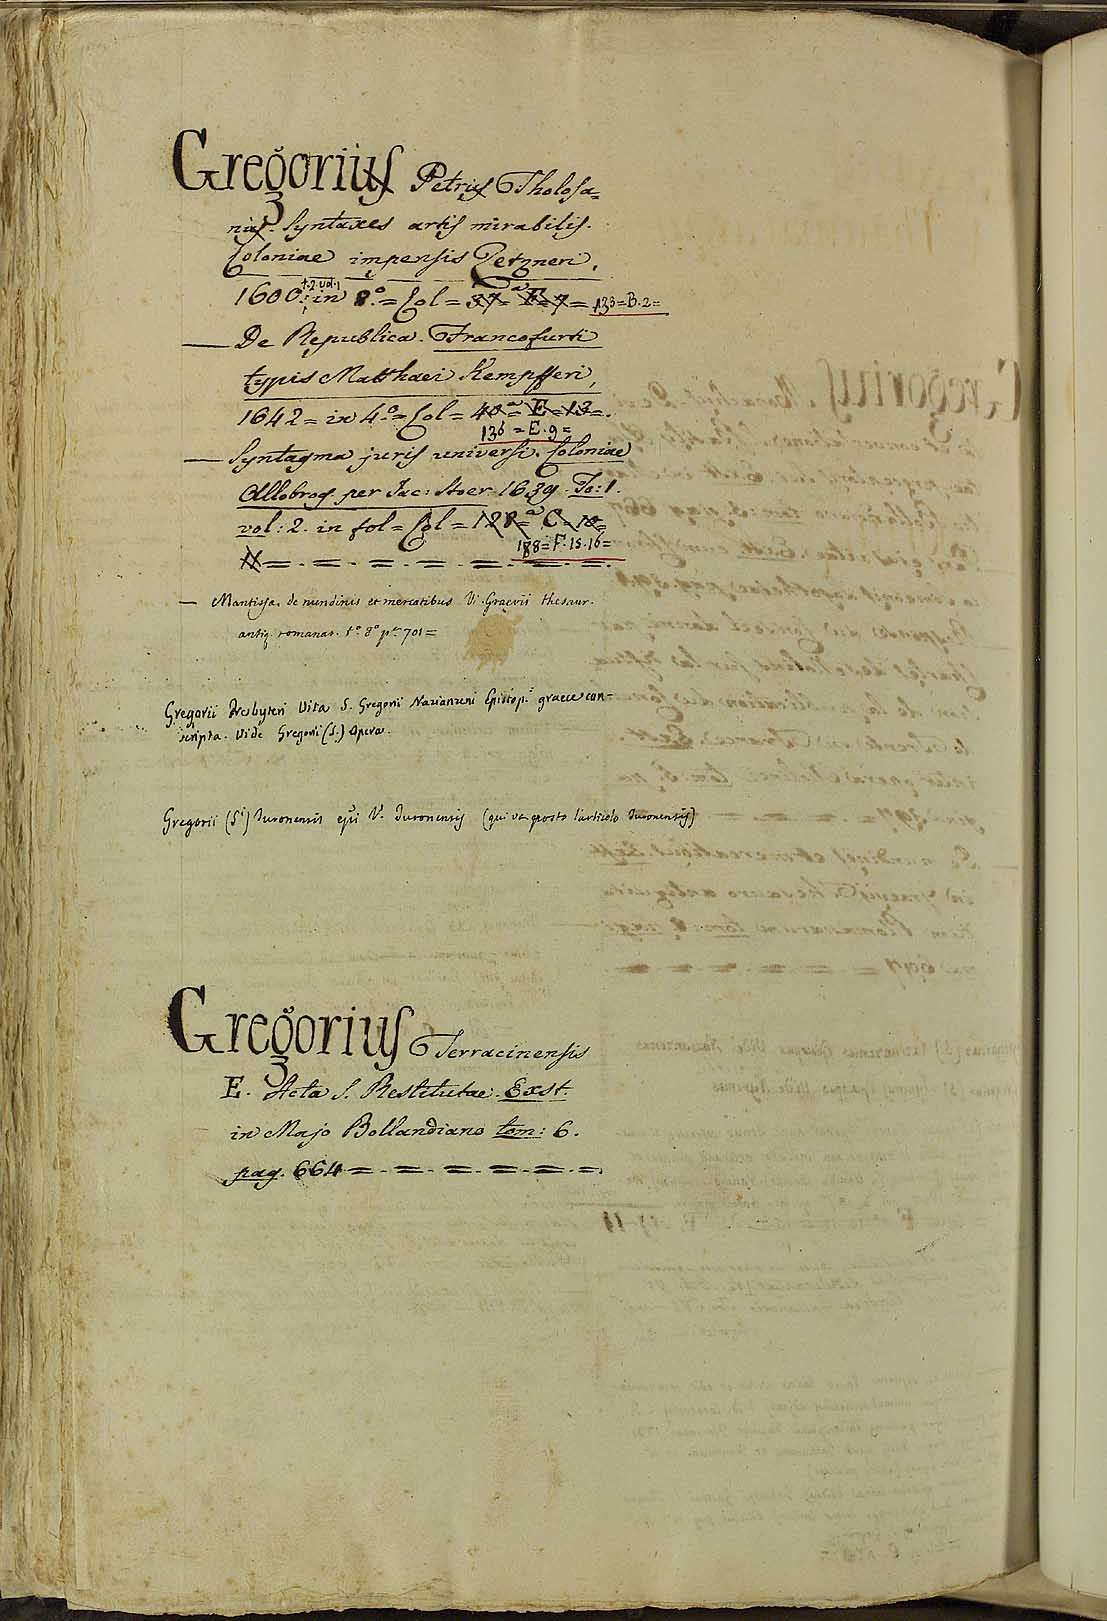 Gregorius Petrus Tholosa=
nus. Syntaxes artis mirabilis.
Coloniae impensis Zetzneri,
1600. t. 2. vol. 1 in 8.º = Col = 37=ª F=7 = 133=B.2=
— De Republica. Francofurti
typis Matthaei Kempfferi,
1642 = in 4.º = Col = 40=ª E=13=.
136 = E.9=
— Syntagma juris universi. Coloniae
Allobrog. per Jac: Stoer 1639. To: 1.
vol: 2. in fol = Col = 128=ª C=10=
138=F.15.16=
= . = . = . = . = . = . =.
— Mantissa, de nundinis et mercatibus Vi. Graevii thesaur.
antiq. romanar. tº 8º pª 701=
Gregorii Presbyteri Vita S. Gregorii Nazianzeni Episcop.i graece con-
scripta. Vide Gregorii (S.) Opera.
Gregorii (Si) Turonensis V. Turonensis (qui va posto l'articolo Turonensis)
Gregorius Terracinensis
E. Acta S. Restitutae. Exst.
in Majo Bollandiano tom: 6.
pag. 664 = . = . = . = . = . =.